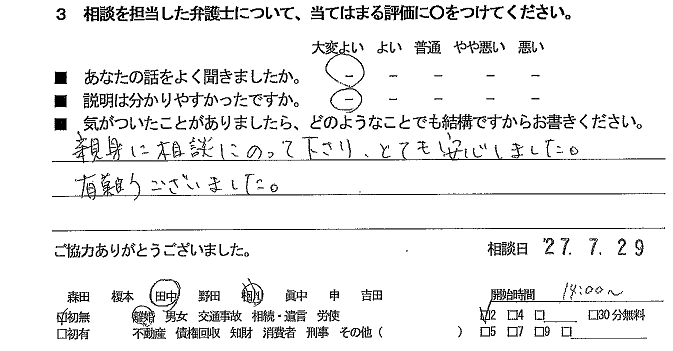 3 相談を担当した弁護士について、当てはまる評価に〇をつけてください。
大変よい よい 普通 やや悪い 悪い
■ あなたの話をよく聞きましたか。 － － － － －
■ 説明は分かりやすかったですか。 － － － － －
■ 気がついたことがありましたら、どのようなことでも結構ですからお書きください。
親身に相談にのって下さり、とても安心しました。
有難うございました。
ご協力ありがとうございました。 相談日 '27.7.29
森田 榎本 田中 野田 相川 眞中 申 吉田 開始時間 18:00～
☑初無 離婚 男女 交通事故 相続・遺言 労使 ☑2 □4 □ □30分無料
□初有 不動産 債権回収 知財 消費者 刑事 その他( ) □5 □7 □9 □